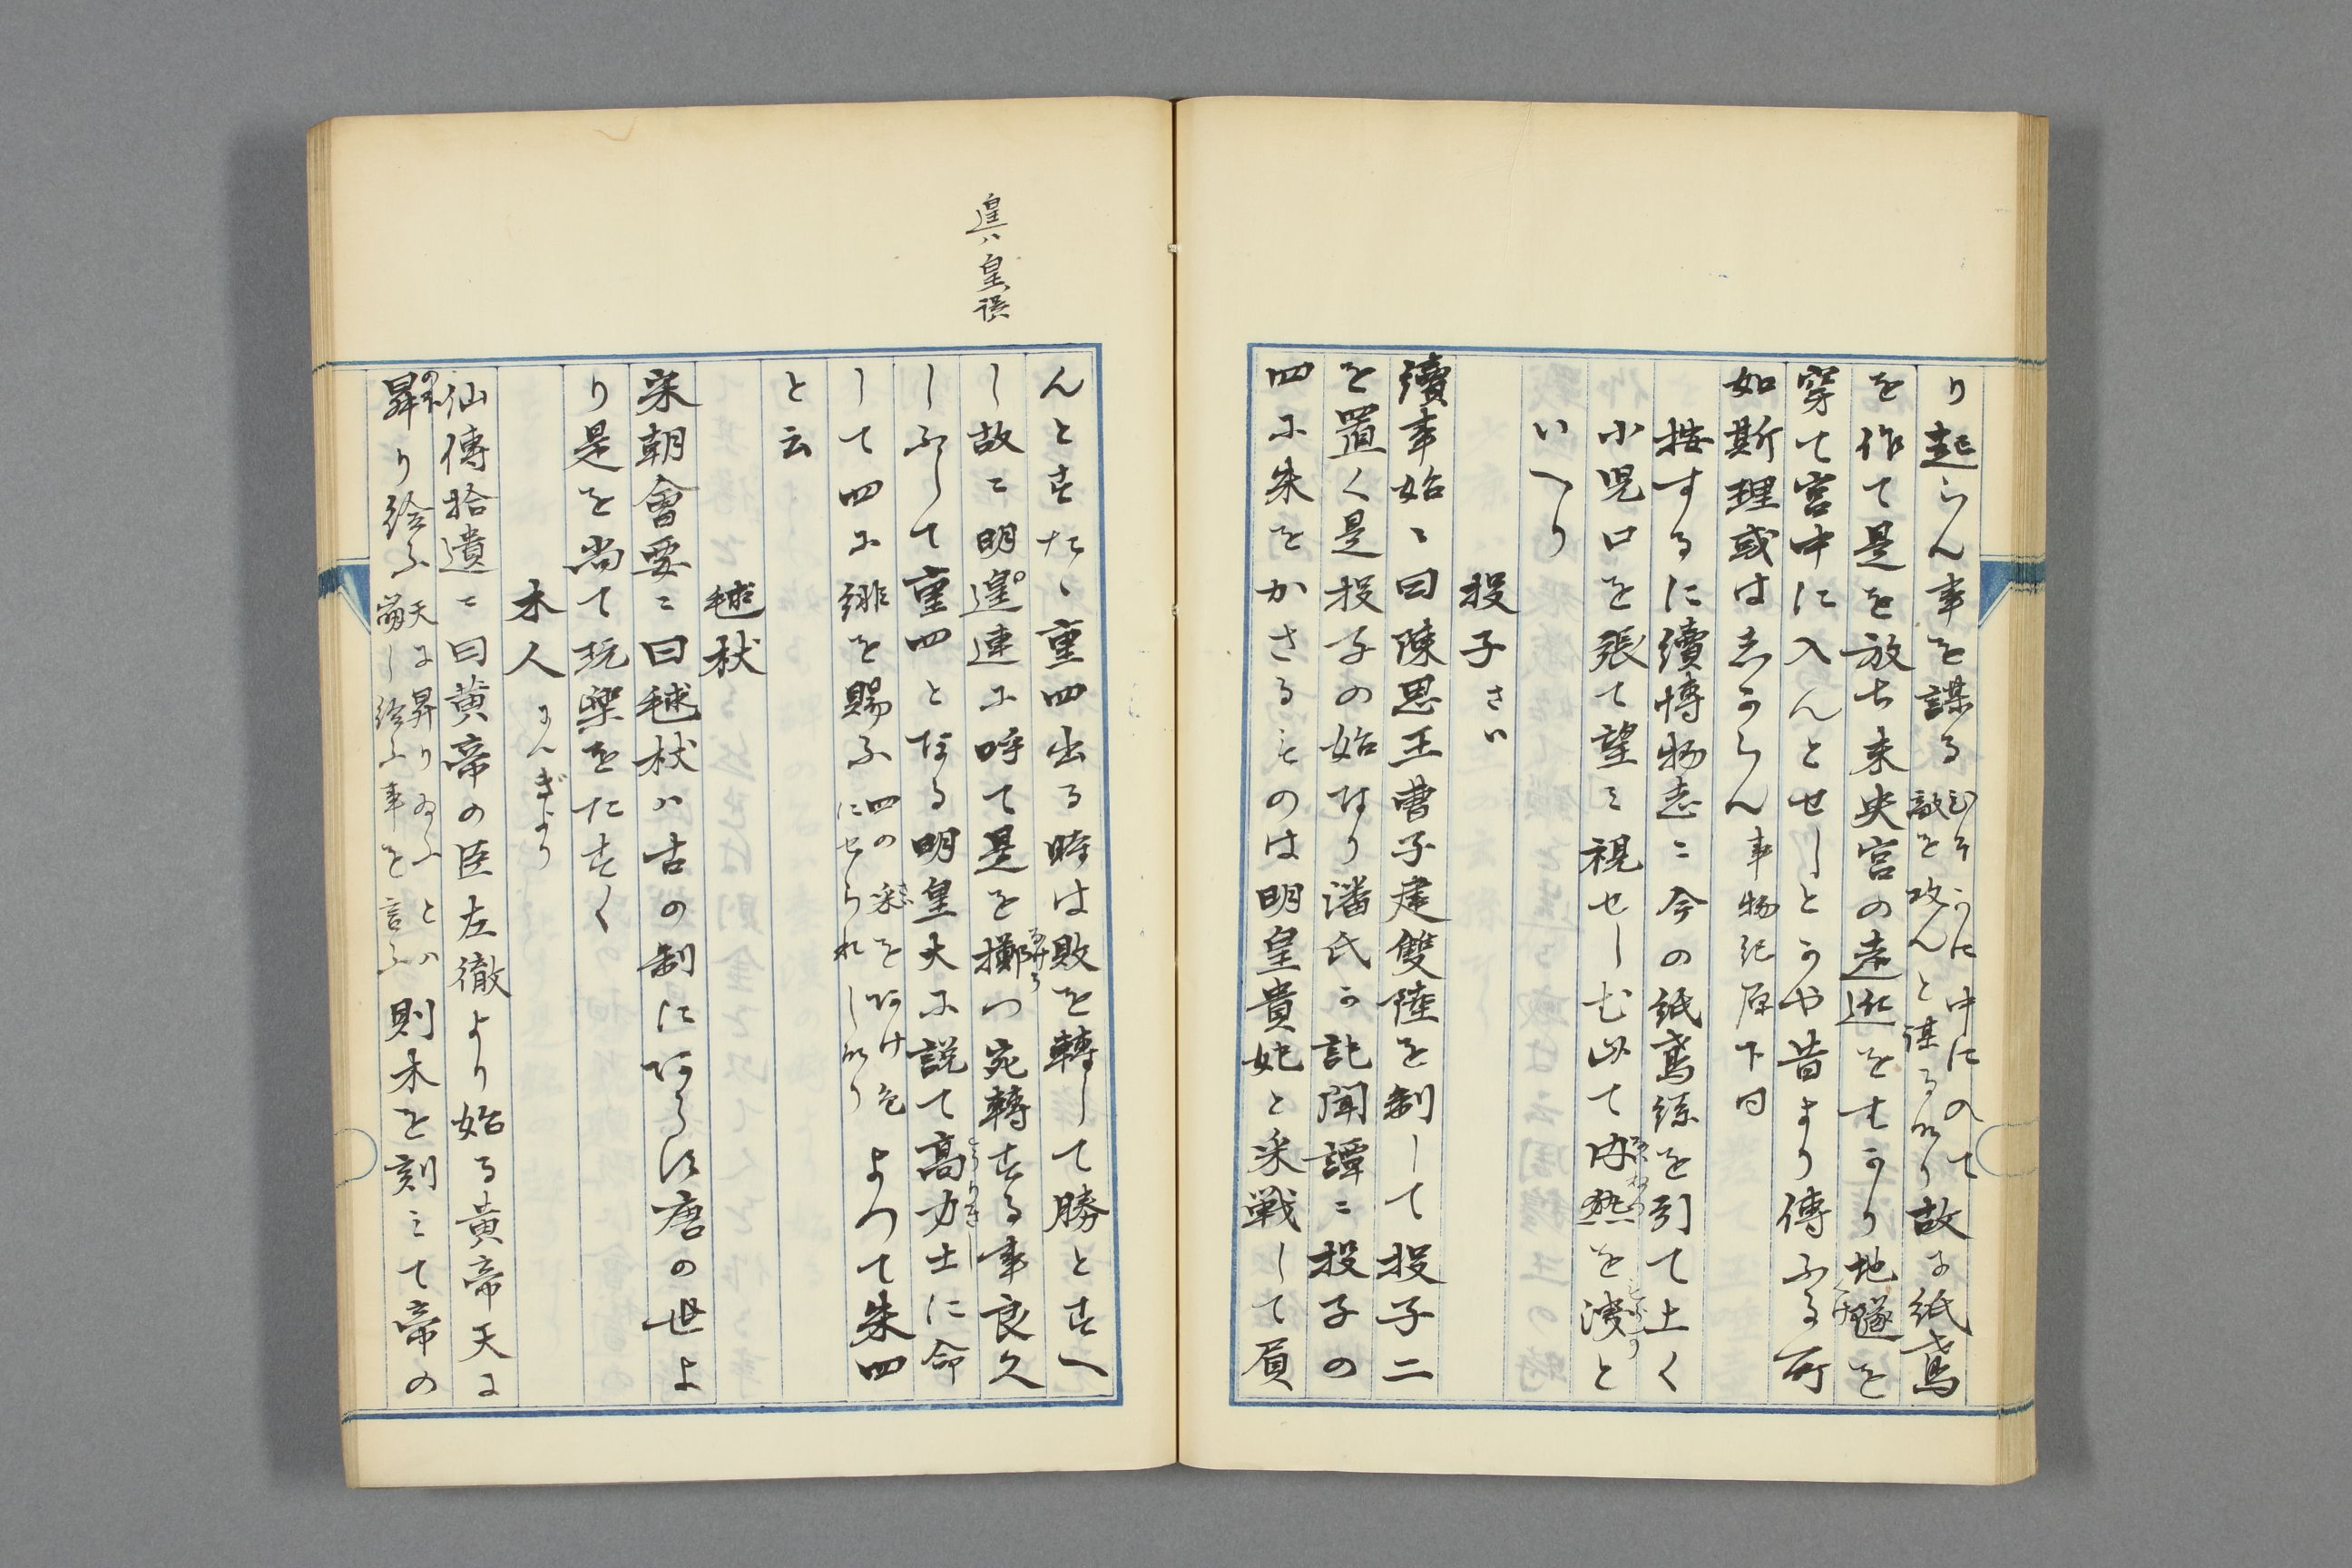 り起らん事を謀る
ひそかに中にのて
敵を攻んと謀る也
故に紙鳶
を作て是を放ち未央宮の遠近をはかり地隧を
穿て宮中に入んとせしとかや昔より傳ふる所
如斯理或は志からん
事物紀原下同
按するに續博物志ニ今の紙鳶絲を引て上く
小児口を張て望ミ視せしむ以て内熱を洩と
いへり
投子
さい
續事始ニ曰陳思王曹子建雙陸を制して投子二
を置く是投子の始なり潘氏か記聞譚ニ投子の
四に朱をかさるものは明皇貴妃と采戦して屓
遑ハ皇ノ誤
んとすたゝ重四出る時は敗を轉して勝とすへ
し故ニ明遑連に呼て是を擲つ宛轉する事良久
しふして重四となる明皇大に説て高力士に命
して四に緋を賜ふ
四の采を
あけ色
にせられし也
よつて朱四
と云
毬杖
宋朝會要ニ曰毬杖ハ古の制にあらす唐の世よ
り是を尚て玩樂をたすく
木人
にんぎよう
仙傳拾遺ニ曰黄帝の臣左徹より始る黄帝天に
昇り給ふ
天に昇りゐふとハ
崩し給ふ事を言ふ
則木を刻ミて帝の